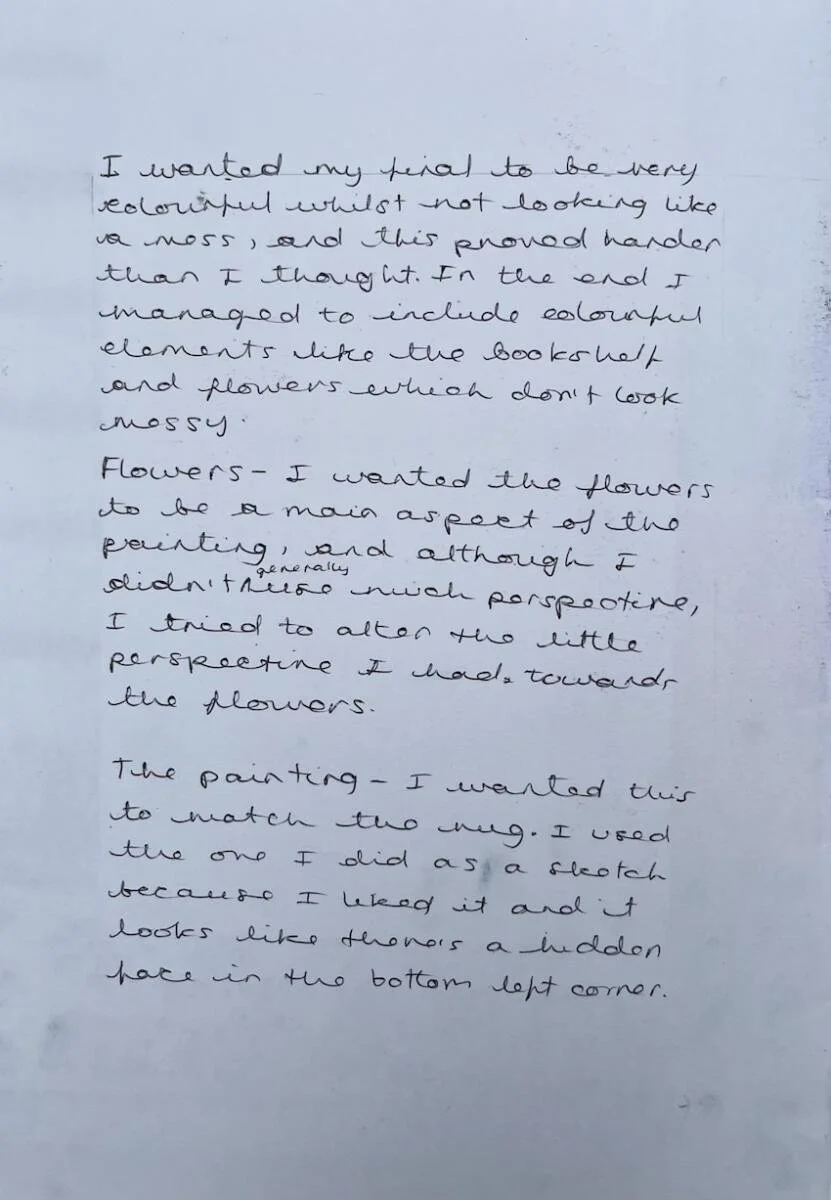 I wanted my final to be very
colourful whilst not looking like
a mess, and this proved harder
than I thought. In the end I
managed to include colourful
elements like the bookshelf
and flowers which don't look
messy.
Flowers - I wanted the flowers
to be a main aspect of the
painting, and although I
generally
didn't use much perspective,
I tried to alter the little
perspective I had towards
the flowers.
The painting - I wanted this
to match the rug. I used
the one I did as a sketch
because I liked it and it
looks like there's a hidden
face in the bottom left corner.